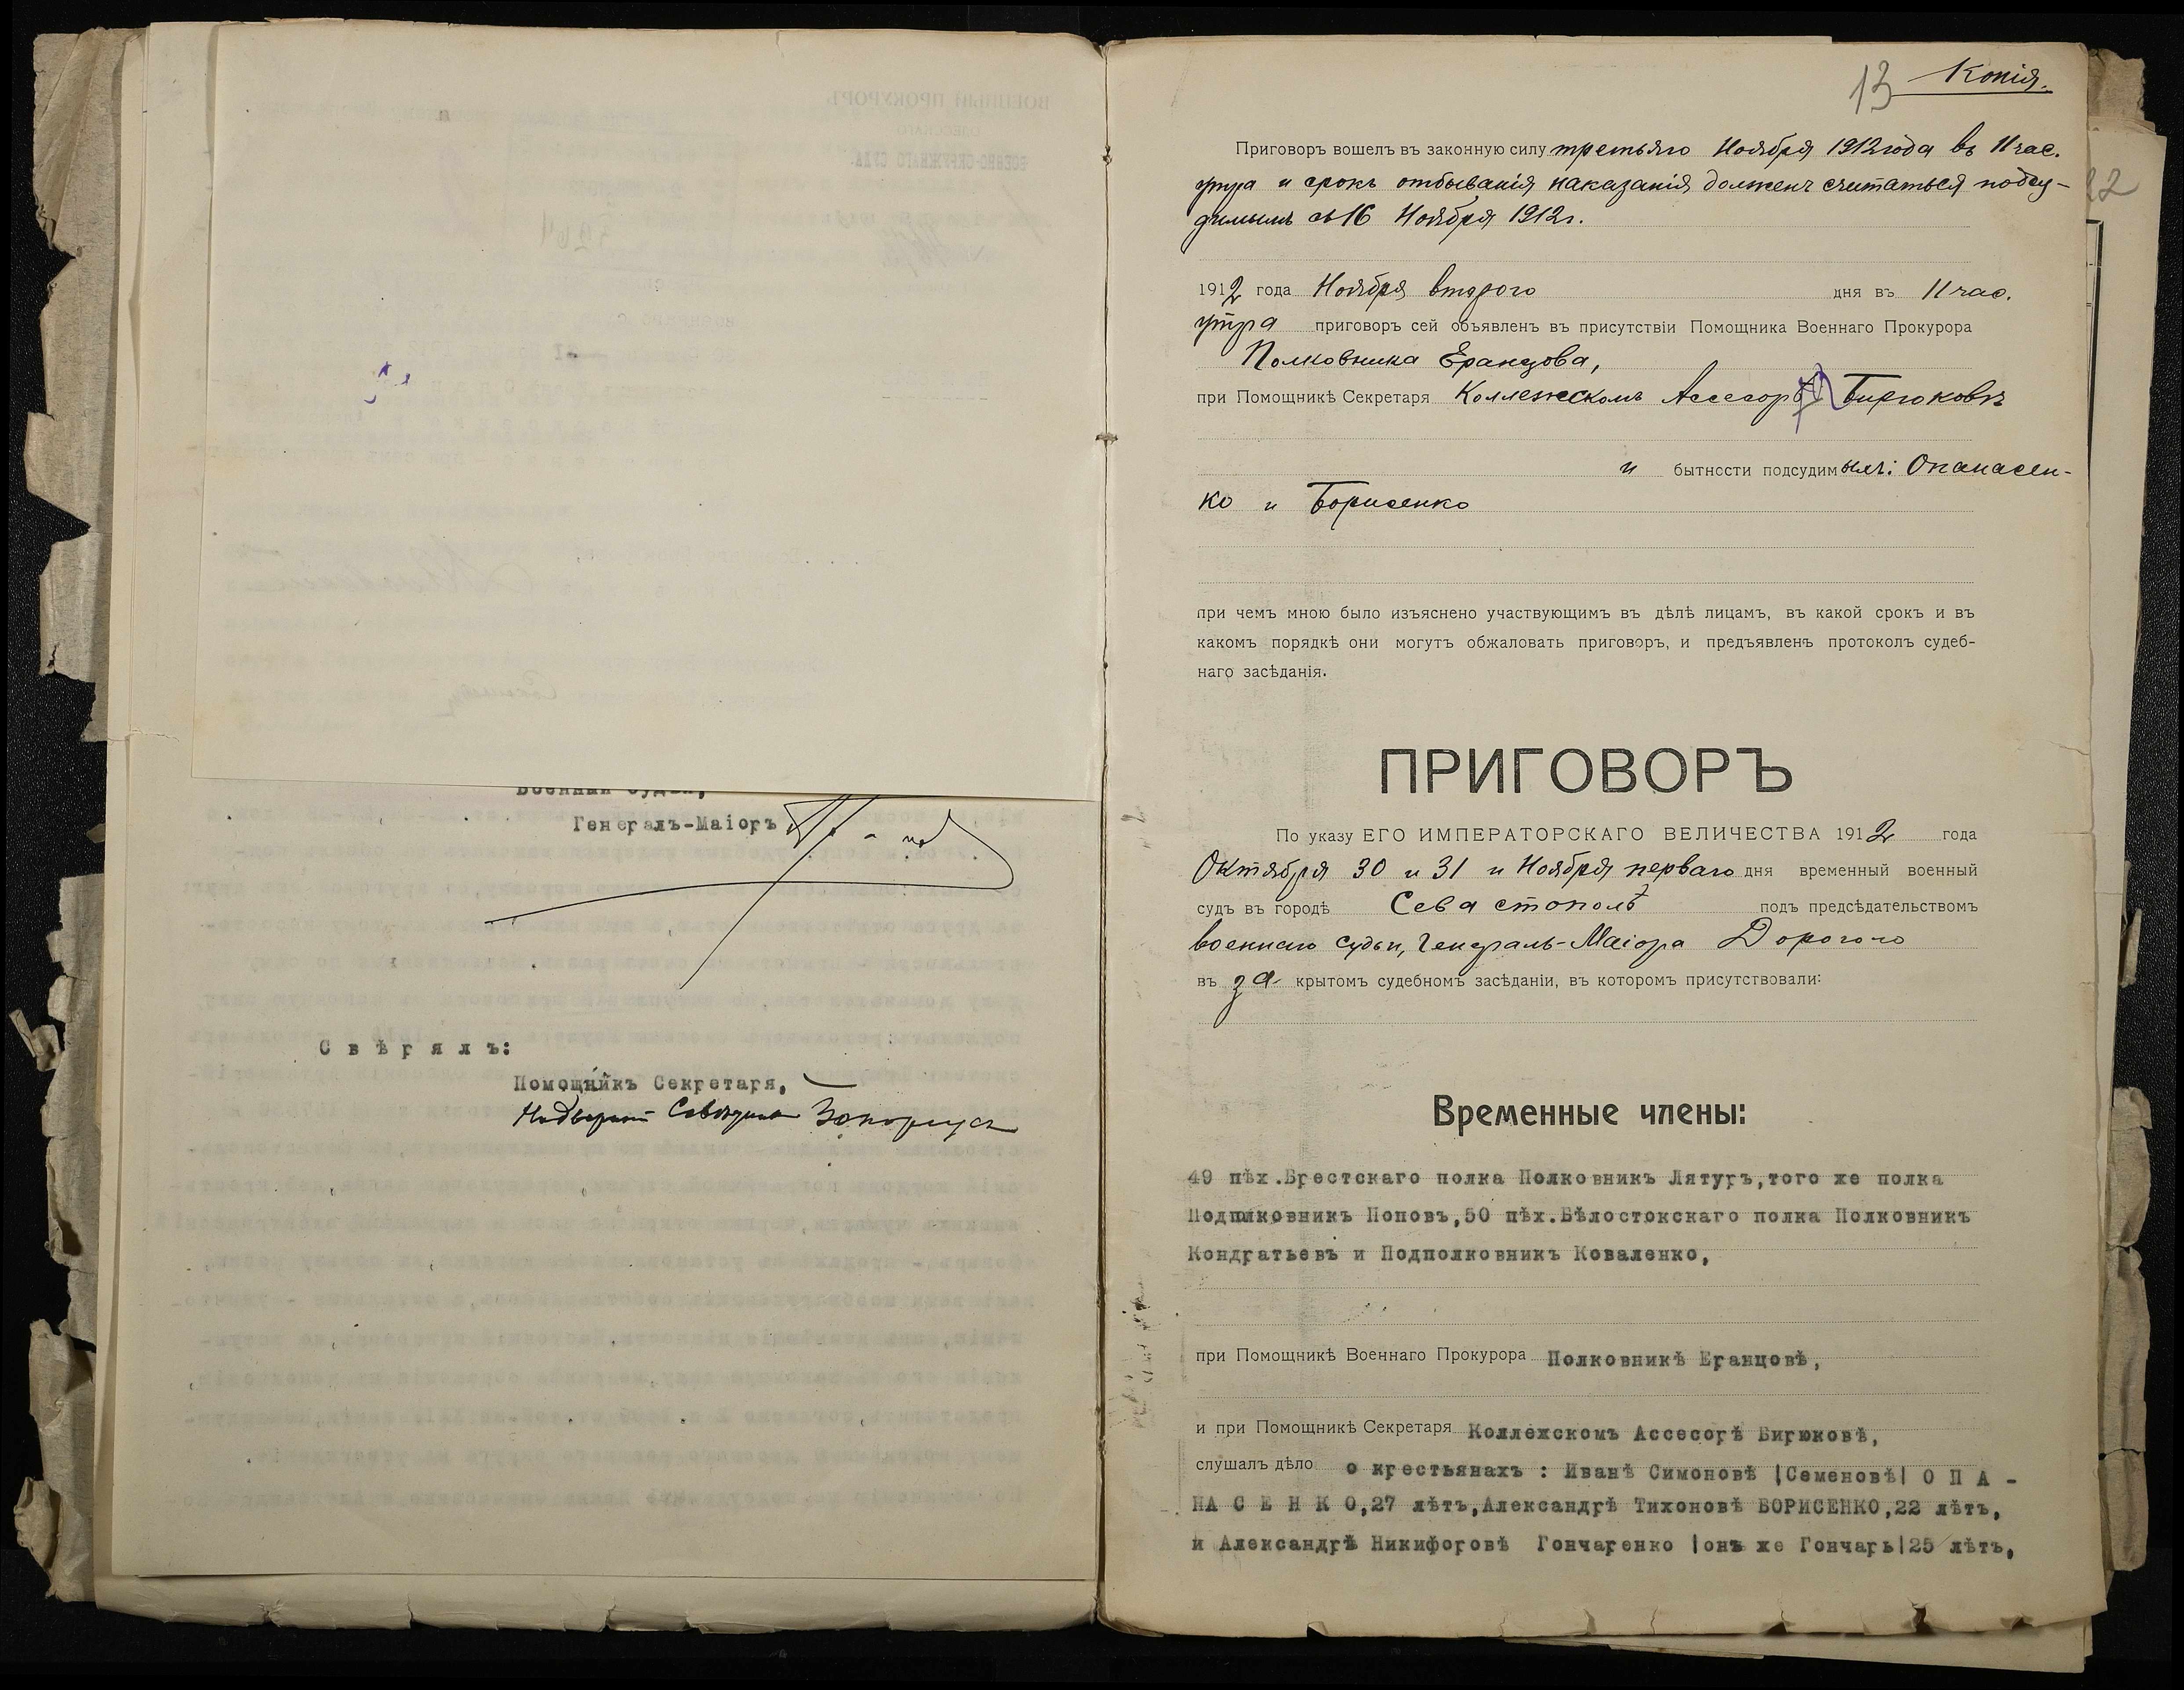 Генералъ-Маіоръ
Свѣрялъ:
Помощникъ Секретаря,
13 Копія.
Приговоръ вошелъ въ законную силу третьяго Ноября 1912 года въ 11 час.
утра и срокъ отбыванія наказанія долженъ считаться подсу-
димымъ съ 16 Ноября 1912 г.
1912 года Ноября второго дня въ 11 час.
утра приговоръ сей объявленъ въ присутствіи Помощника Военнаго Прокурора
Полковника Еранцова,
при Помощникѣ Секретаря Коллежскомъ Ассесорѣ Бирюковѣ
и бытности подсудимыхъ: Опанасен-
ко и Борисенко
при чемъ мною было изъяснено участвующимъ въ дѣлѣ лицамъ, въ какой срокъ и въ
какомъ порядкѣ они могутъ обжаловать приговоръ, и предъявленъ протоколъ судеб-
наго засѣданія.
ПРИГОВОРЪ
По указу ЕГО ИМПЕРАТОРСКАГО ВЕЛИЧЕСТВА 1912 года
Октября 30 и 31 и Ноября перваго дня временный военный
судъ въ городѣ Севастополѣ подъ предсѣдательствомъ
военнаго судьи, Генералъ-Маіора Дорогого
въ закрытомъ судебномъ засѣданіи, въ которомъ присутствовали:
Временные члены:
49 пѣх.Брестскаго полка Полковникъ Лятуръ,того же полка
Подполковникъ Поповъ,50 пѣх.Бѣлостокскаго полка Полковникъ
Кондратьевъ и Подполковникъ Коваленко,
при Помощникѣ Военнаго Прокурора Полковникѣ Еранцовѣ,
и при Помощникѣ Секретаря Коллежскомъ Ассесорѣ Бирюковѣ,
слушалъ дѣло о крестьянахъ : Иванѣ Симоновѣ |Семеновѣ| О П А -
НА С Е Н К О,27 лѣтъ,Александрѣ Тихоновѣ БОРИСЕНКО,22 лѣтъ,
и Александрѣ Никифоровѣ Гончаренко |онъ же Гончарь|25 лѣтъ,